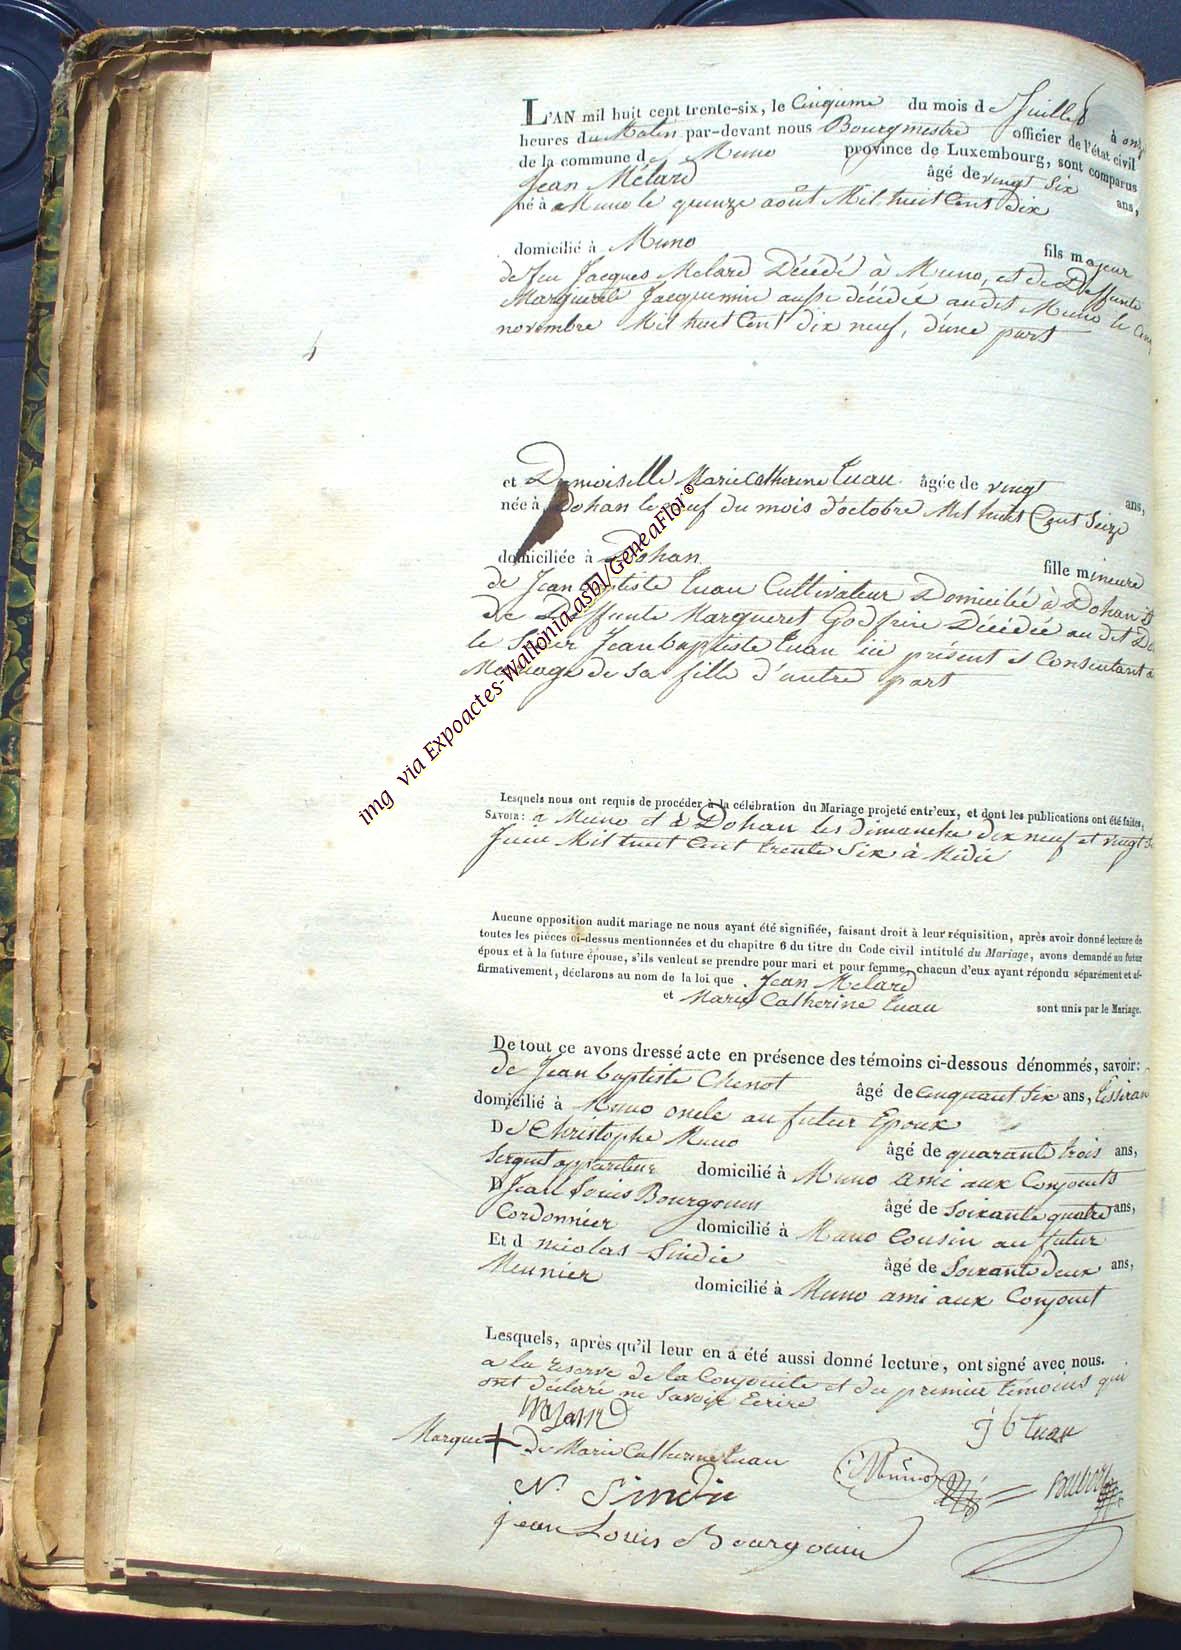 L'AN mil huit cent trente-six, le Cinquieme du mois de Juillet à onze
heures du Matin par-devant nous Bourgmestre officier de l'état civil
de la commune de Muno province de Luxembourg, sont comparus
Jean Mélard âgé de vingt Six ans,
né à Muno le quinze août Mil huit Cent Dix
domicilié à Muno fils majeur
de feu Jacques Melard Décédé à Muno, et de Deffunte
Marguerite Jacquemin aussi décédée audit Muno le
novembre Mil huit Cent dix neuf, d'une part
et Demoiselle Marie Catherine Tuau âgée de vingt ans,
née à Dohan le neuf du mois d'octobre Mil huit Cent Seize
domiciliée à Dohan fille mineure
de Jean baptiste Tuau Cultivateur Domicilié à Dohan Et
de Deffunte Margueret Godfrin Décédée au dit
le Sieur Jean baptiste Tuau ici présent et Consentant
Mariage de Sa fille d'autre part
Lesquels nous ont requis de procéder à la célébration du Mariage projeté entr'eux, et dont les publications ont été faites,
SAVOIR: a Muno et à Dohan les dimanche dix neuf et vingt
Juin Mil huit Cent trente Six à Midi
Aucune opposition audit mariage ne nous ayant été signifiée, faisant droit à leur réquisition, après avoir donné lecture de
toutes les pièces ci-dessus mentionnées et du chapitre 6 du titre du Code civil intitulé du Mariage, avons demandé au futur
époux et à la future épouse, s'ils veulent se prendre pour mari et pour femme, chacun d'eux ayant répondu séparément et af-
firmativement, déclarons au nom de la loi que Jean Melard
et Marie Catherine Tuau sont unis par le Mariage.
De tout ce avons dressé acte en présence des témoins ci-dessous dénommés, savoir:
de Jean baptiste Chenot âgé de cinquant Six ans,
domicilié à Muno oncle au futur Epoux
De Christophe Muno âgé de quarante trois ans,
Sergent appariteur domicilié à Muno ami aux Conjouts
D Jean Louis Bourgouin âgé de Soixante quatre ans,
Cordonnier domicilié à Muno Cousin au futur
Et d nicolas Sindic âgé de Soixante deux ans,
Meunier domicilié à Muno ami aux Conjouet
Lesquels, après qu'il leur en à été aussi donné lecture, ont signé avec nous.
a la reserve de la Conjouite et du premier témoins qui
ont déclaré ne Savoir Ecrire
j b Tuau
Marque de Marie Catherine Tuau
Muno
N. Sindic
jean Louis Bourgouin
img via Expoactes-Wallonia asbl/GeneaFlor©